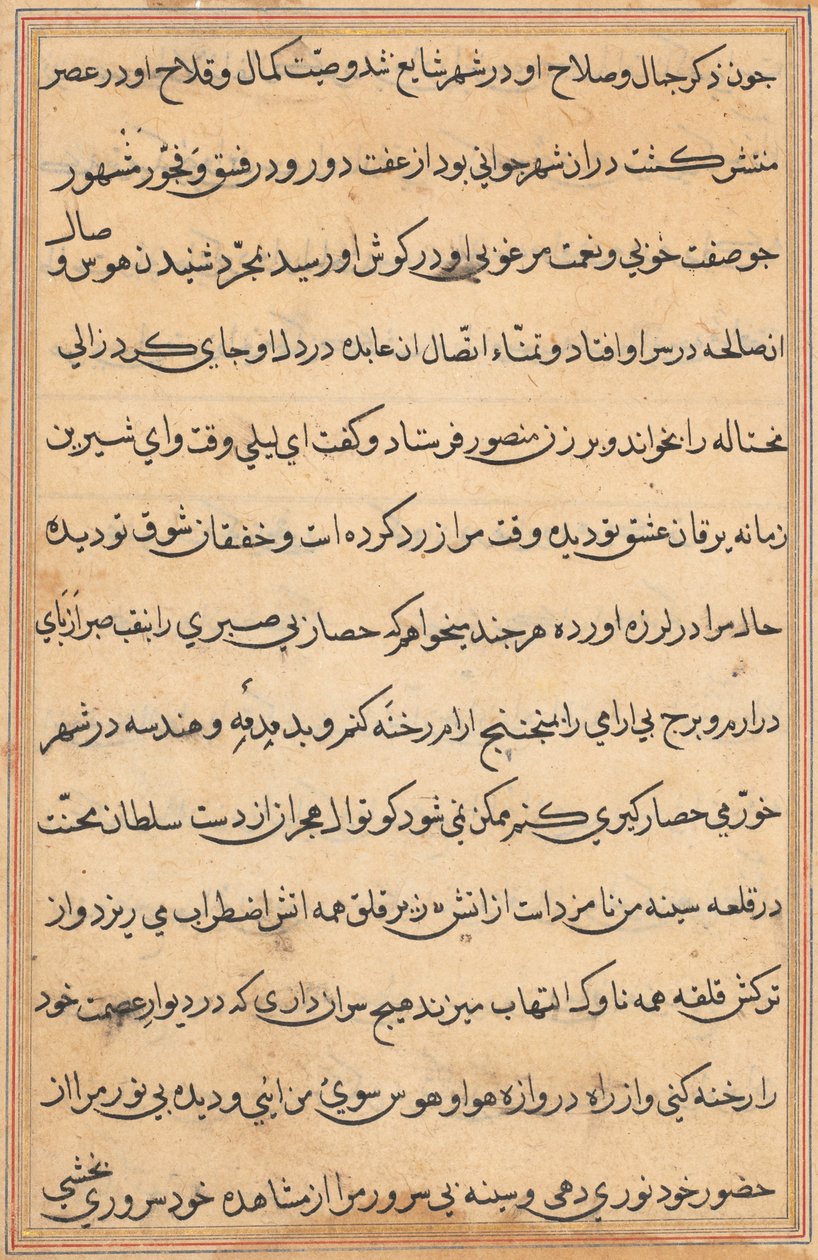 جون ذكر جمال و صلاح او در شهر شايع شد و صيّت كمال و فلاح او در عصر
منتشر كشت دران شهر جواني بود از عفت دور و در فسق وَ فجّور مَشْهور
جو صفت خوبي و نعمت مرغوبي او در كوش او رسيد بمجرّد شنيدن هوس وصال
ان صالحه در سر او افتاد و تمنّاء اتّصال ان عابده در دل او جاي كرد زالي
محتاله را بخواند و بر زن منصور فرستاد و كفت اي ليلي وقت واي شيرين
زمانه يرقان عشق تو ديده وقت مرا زرد كرده است و خفقان شوق تو ديده
حال مرا در لرزه اورده هر جند ميخواهم كه حصار بي صبري را بنقب صبر اَز بَاي
درارم و برج بي ارامي را بمنجنيج ارام رخنَه كنم و بدمدمهٔ و هندسه در شهر
خورّمي حصار كيري كنم ممكن نمي شود كوتوال هجران از دست سلطان محنّت
در قلعه سينه من نامزد است از اتش زير قلق همه اتش اضطراب مي ريزد و از
تركش قلقه همه ناوك التهاب ميزند هيج سران داري كه در ديوارِ عصمت خود
را رخنه كني و از راه دروازه هوا و هوس سوئ من ايئي و ديده بي نور مرا از
حضور خود نوري دهي و سينه بي سرور مرا از مشاهده خود سروري بخشي